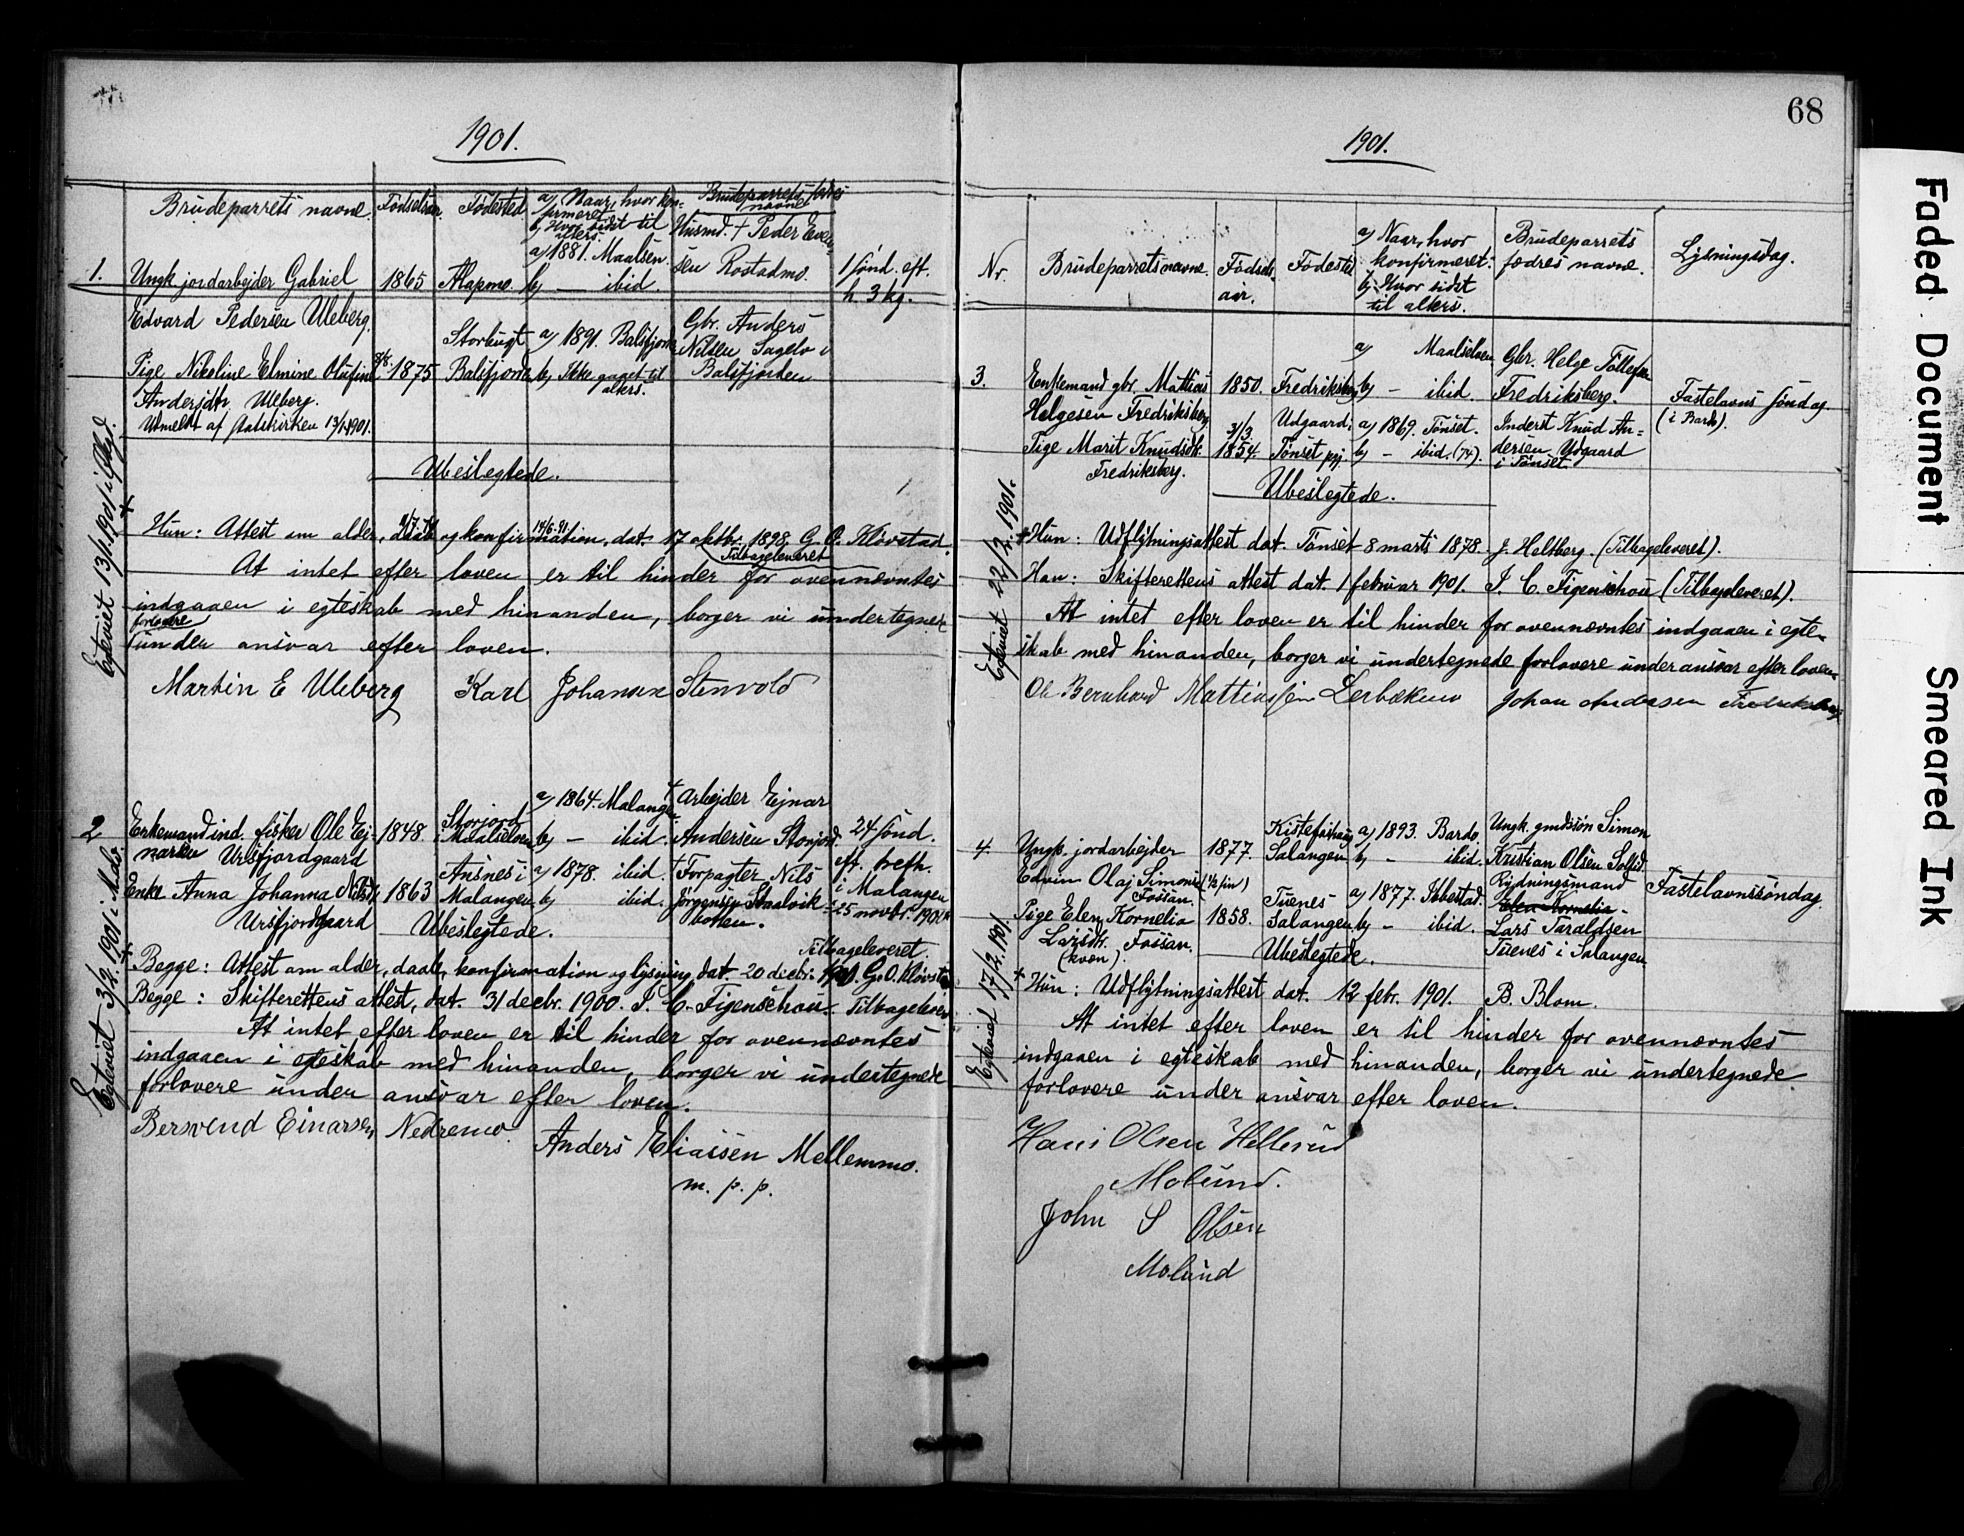 1901.
Brudeparrets navne. Fødselsaar. Fødested a) Naar, hvor kon-
firmeret
b) Hvor sidst til
alters.
Brudeparrets fædres
navne
1. Ungk. jordarbejder Gabriel
Edvard Pedersen Uleberg.
1865 Alapmo. a) 1881. Maalselv.
b) — ibid.
Husmd. + Peder Even-
sen Rostadmo.
1 sønd. eft.
h. 3 kg.
Pige Nikoline Elmine Olufine
Andersdtr. Uleberg.
Utmeldt af statskirken 13/1 1901.
1875 Storbugt
Balsfjord
a) 1891. Balsfjord
b) Ikke gaaet til
alters.
Gbr. Anders
Nilsen Sagelv i
Balsfjorden
Ubeslegtede.
Egteviet 13/1. 1901 i
Hun: Attest om alder, daab og konfirmation, dat. 17 oktbr. 1898. G. O. Klovstad.
Tilbageleveret
At intet efter loven er til hinder for ovennævntes
indgaaen i egteskab med hinanden, borger vi undertegnede
forlovere
under ansvar efter loven.
Martin E Uleberg Karl Johansen Stenvold
2 Enkemand ind. fisker Ole Ej-
narsen Ursfjordgaard
1848. Storjord
i Maalselven
a) 1864. Malangen
b) — ibid.
+ Arbejder Ejnar
Andersen Storjord.
24 sønd.
eft. trefh.
i Malangen
25 novbr. 1900.
Enke Anna Johanna Nilsdtr.
Ursfjordgaard
1863 Ansnes i
Malangen
a) 1878. ibid.
b) ibid.
+ Forpagter Nils
Jørgensen Skaalvik-
botten.
Ubeslegtede.
Egteviet 3/2. 1901 i Malv.
Tilbageleveret.
Begge: Attest om alder, daab, konfirmation og lysning, dat. 20 decbr. 1900. G. O. Klovstad
Begge: Skifterettens attest, dat. 31 decbr. 1900. J. C. Figenschou. Tilbageleveret
At intet efter loven er til hinder for ovennævntes
indgaaen i egteskab med hinanden, borger vi undertegnede
forlovere under ansvar efter loven.
Bersvend Einarsen Nedremo. Anders Eliassen Mellemmo.
m. p. p.
68
1901.
Nr Brudeparrets navne. Fødsels-
aar.
Fødested a) Naar, hvor
konfirmeret.
b) Hvor sidst
til alters.
Brudeparrets
fædres navne.
Lysningsdag.
3. Enkemand gbr. Mattias
Helgesen Fredriksberg
1850. Fredriksberg a) Maalselven
b) — ibid.
Gbr. Helge Tollefsen
Fredriksberg.
Fastelavns søndag
(i Bardo).
Pige Marit Knudsdtr.
Fredriksberg.
3/3
1854. Udgaard,
Tønset pgj.
a) 1869. Tønset.
b) — ibid. (74).
Inderst Knud An-
dersen Udgaard
i Tønset
Ubeslegtede.
Egteviet 22/2. 1901.
Hun: Udflytningsattest dat. Tønset 8 marts 1878. J. Heltberg. (Tilbageleveret).
Han: Skifterettens attest dat. 1 februar 1901. J. C. Figenschou (Tilbageleveret).
At intet efter loven er til hinder for ovennævntes indgaaen i egte-
skab med hinanden, borger vi undertegnede forlovere under ansvar efter loven
Ole Bernhard Mattiassen Lerbækmo Johan Andersen Fredriksberg
4. Ungk. jordarbejder
Edvin Olaj Simonsen
Fossan.
1877.
(1/2 fin)
Kistefoshaug
Salangen
a) 1893. Bardo.
b) — ibid.
Ungk. gmdssøn Simon
Kristian Olsen Solli
Fastelavnssøndag.
Pige Elen Kornelia
Larsdtr. Fossan.
(kven).
1858. Tuenes
Salangen
a) 1877. Ibbestad.
b) — ibid.
Rydningsmand
Elen Kornelia
Lars Taraldsen
Tuenes i Salangen
Ubeslegtede.
Egteviet 17/2. 1901.
Hun: Udflytningsattest dat. 12 febr. 1901. B. Blom.
At intet efter loven er til hinder for ovennævntes
indgaaen i egteskab med hinanden, borger vi undertegnede
forlovere under ansvar efter loven.
Hans Olsen Hellerud
Molund.
John S Olsen
Molund
Faded Document
Smeared Ink